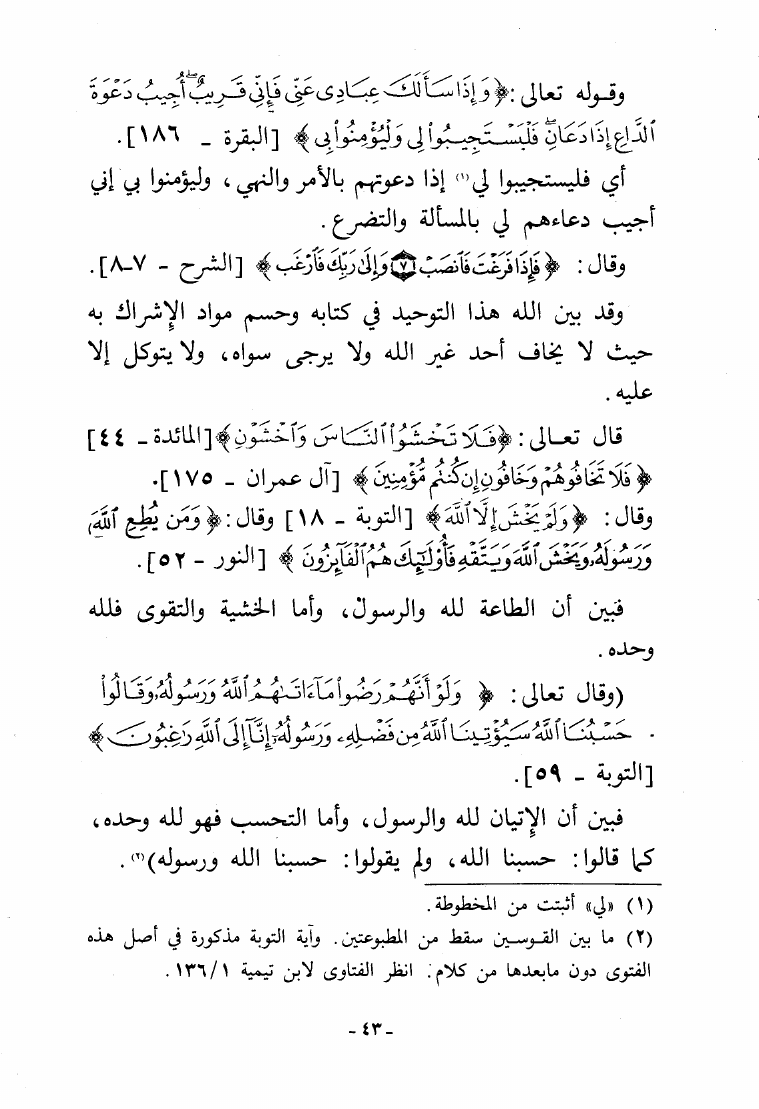 وقوله تعالى: ﴿ وَإِذَا سَأَلَكَ عِبَادِي عَنِّي فَإِنِّي قَرِيبٌ ۖ أُجِيبُ دَعْوَةَ
ٱلدَّاعِ إِذَا دَعَانِ ۖ فَلْيَسْتَجِيبُواْ لِي وَلْيُؤْمِنُواْ بِي ﴾ [البقرة - ١٨٦].
أي فليستجيبوا لي(١) إذا دعوتهم بالأمر والنهي، وليؤمنوا بي إني
أجيب دعاءهم لي بالمسألة والتضرع.
وقال: ﴿ فَإِذَا فَرَغْتَ فَٱنصَبْ ٧ وَإِلَىٰ رَبِّكَ فَٱرْغَب ﴾ [الشرح - ٧-٨].
وقد بين الله هذا التوحيد في كتابه وحسم مواد الإشراك به
حيث لا يخاف أحد غير الله ولا يرجى سواه، ولا يتوكل إلا
عليه.
قال تعالى: ﴿فَلَا تَخْشَوُاْ ٱلنَّاسَ وَٱخْشَوْنِ﴾ [المائدة - ٤٤]
﴿ فَلَا تَخَافُوهُمْ وَخَافُونِ إِن كُنتُم مُّؤْمِنِينَ ﴾ [آل عمران - ١٧٥].
وقال: ﴿ وَلَمْ يَخْشَ إِلَّا ٱللَّهَ ﴾ [التوبة - ١٨] وقال: ﴿ وَمَن يُطِعِ ٱللَّهَ
وَرَسُولَهُۥ وَيَخْشَ ٱللَّهَ وَيَتَّقْهِ فَأُوْلَٰٓئِكَ هُمُ ٱلْفَآئِزُونَ ﴾ [النور - ٥٢].
فبين أن الطاعة لله والرسول، وأما الخشية والتقوى فلله
وحده.
(وقال تعالى: ﴿ وَلَوْ أَنَّهُمْ رَضُواْ مَآ ءَاتَىٰهُمُ ٱللَّهُ وَرَسُولُهُۥ وَقَالُواْ
حَسْبُنَا ٱللَّهُ سَيُؤْتِينَا ٱللَّهُ مِن فَضْلِهِۦ وَرَسُولُهُۥٓ إِنَّآ إِلَى ٱللَّهِ رَٰغِبُونَ ﴾
[التوبة - ٥٩].
فبين أن الإتيان لله والرسول، وأما التحسب فهو لله وحده،
كما قالوا: حسبنا الله، ولم يقولوا: حسبنا الله ورسوله)(٢).
(١) «لي» أثبتت من المخطوطة.
(٢) ما بين القوسين سقط من المطبوعتين. وآية التوبة مذكورة في أصل هذه
الفتوى دون مابعدها من كلام: انظر الفتاوى لابن تيمية ١٣٦/١.
- ٤٣ -